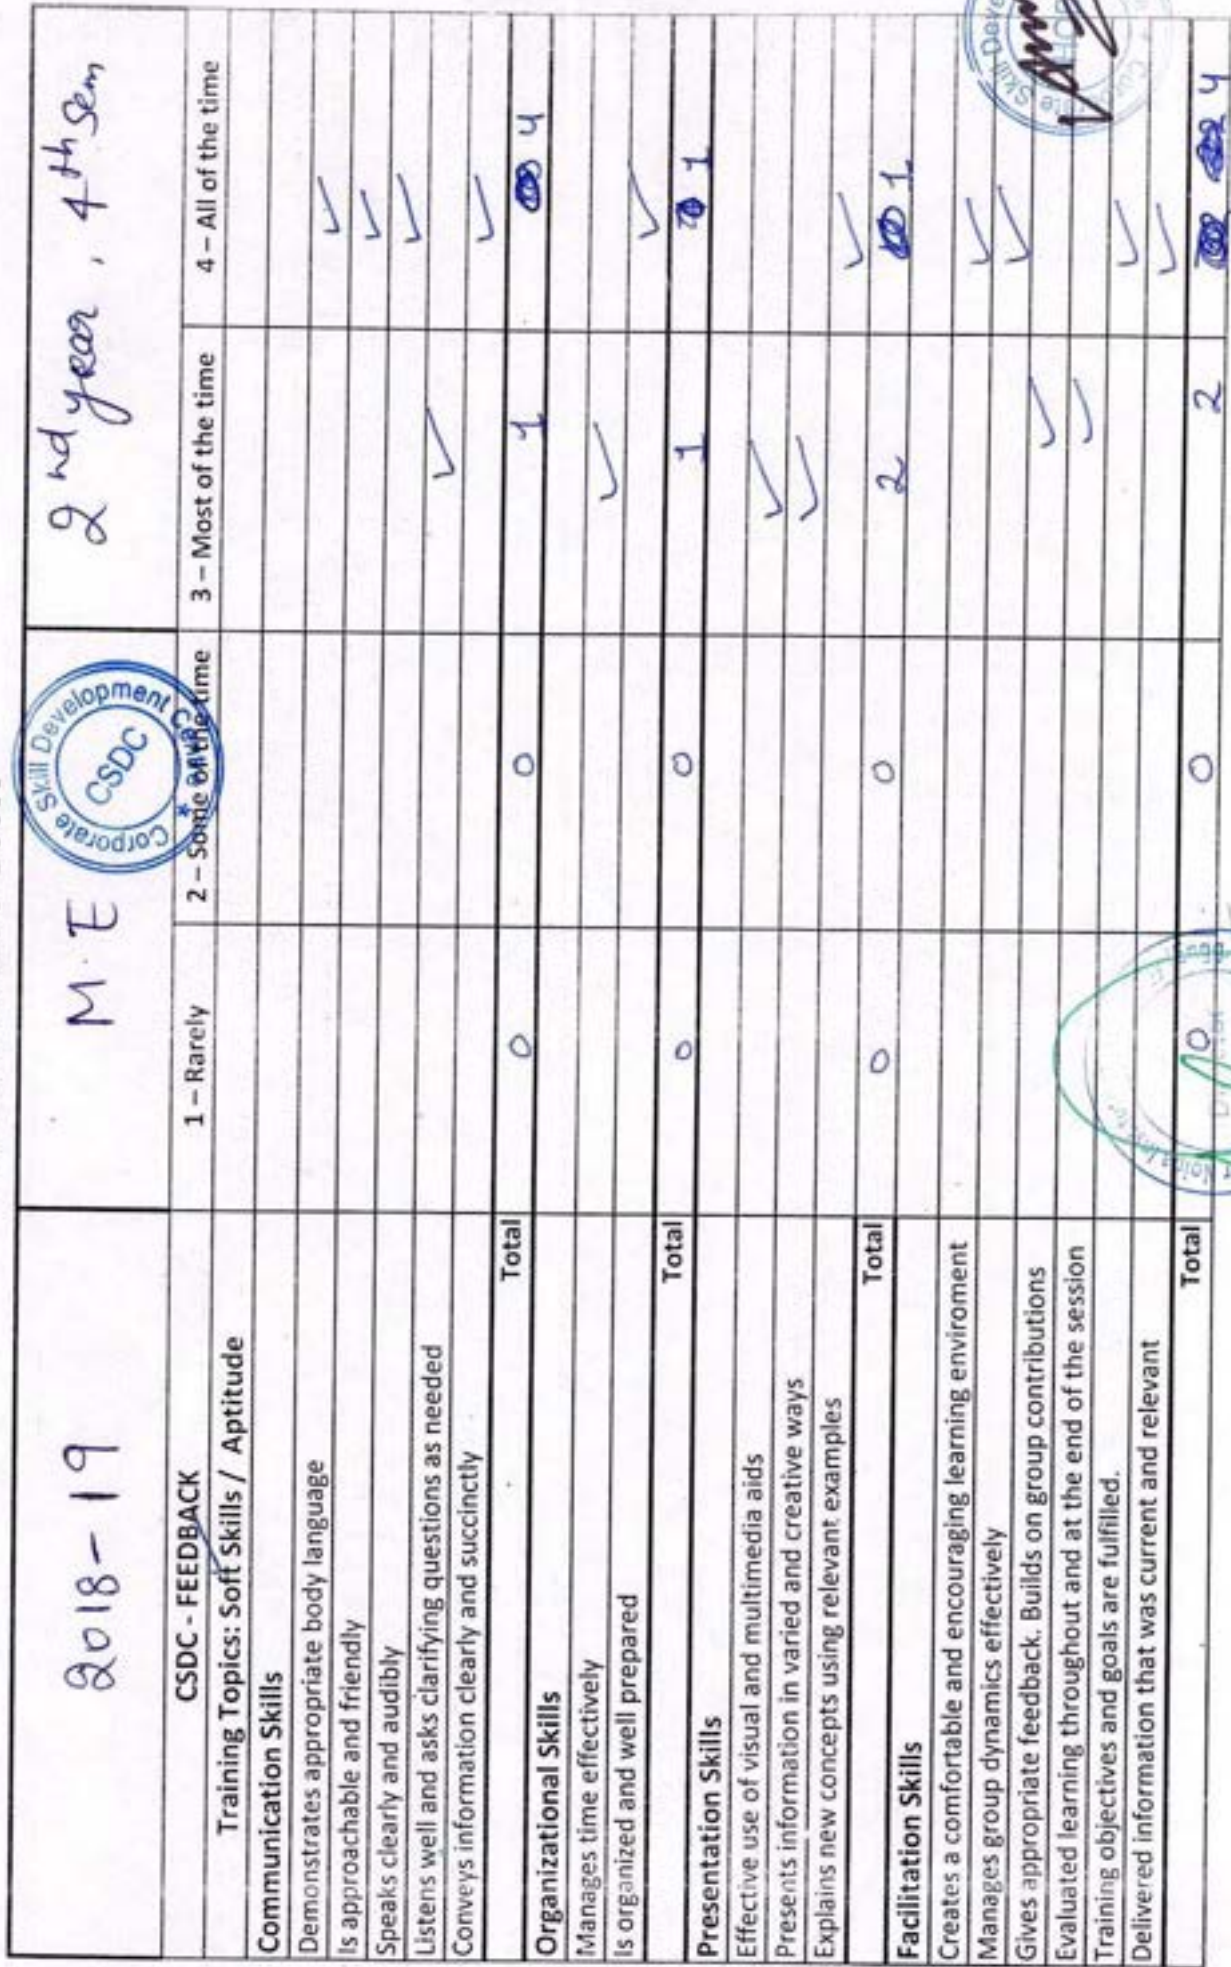 2018-19 M E 2nd year, 4th Sem
Corporate Skill Development Ce
CSDC
CSDC - FEEDBACK 1 – Rarely 2 – Some of the time 3 – Most of the time 4 – All of the time
Training Topics: Soft Skills / Aptitude
Communication Skills
Demonstrates appropriate body language ✓
Is approachable and friendly ✓
Speaks clearly and audibly ✓
Listens well and asks clarifying questions as needed ✓
Conveys information clearly and succinctly ✓
Total 0 0 1 4
Organizational Skills
Manages time effectively ✓
Is organized and well prepared ✓
Total 0 0 1 1
Presentation Skills
Effective use of visual and multimedia aids ✓
Presents information in varied and creative ways ✓
Explains new concepts using relevant examples ✓
Total 0 0 2 1
Facilitation Skills
Creates a comfortable and encouraging learning enviroment ✓
Manages group dynamics effectively ✓
Gives appropriate feedback. Builds on group contributions ✓
Evaluated learning throughout and at the end of the session ✓
Training objectives and goals are fulfilled. ✓
Delivered information that was current and relevant ✓
Total 0 0 2 4